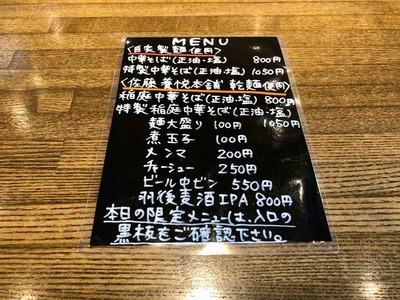 MENU
〈自家製麺使用〉
中華そば(正油・塩) 800円
特製中華そば(正油・塩) 1050円
〈佐藤養悦本舗 乾麺使用〉
稲庭中華そば(正油・塩) 800円
特製稲庭中華そば(正油・塩) 1050円
麺大盛り 100円
煮玉子 100円
メンマ 200円
チャーシュー 250円
ビール中ビン 550円
羽後麦酒IPA 800円
本日の限定メニューは、入口の
黒板をご確認下さい。